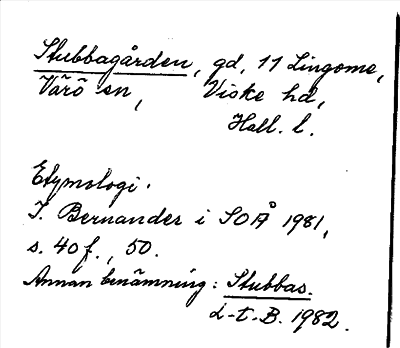 Stubbagården, gd, 11 Lingome,
Värö sn, Viske hd,
Hall. l.
Etymologi.
I. Bernander i SOÅ 1981,
s. 40 f., 50.
Annan benämning: Stubbas.
L-t. B. 1982.